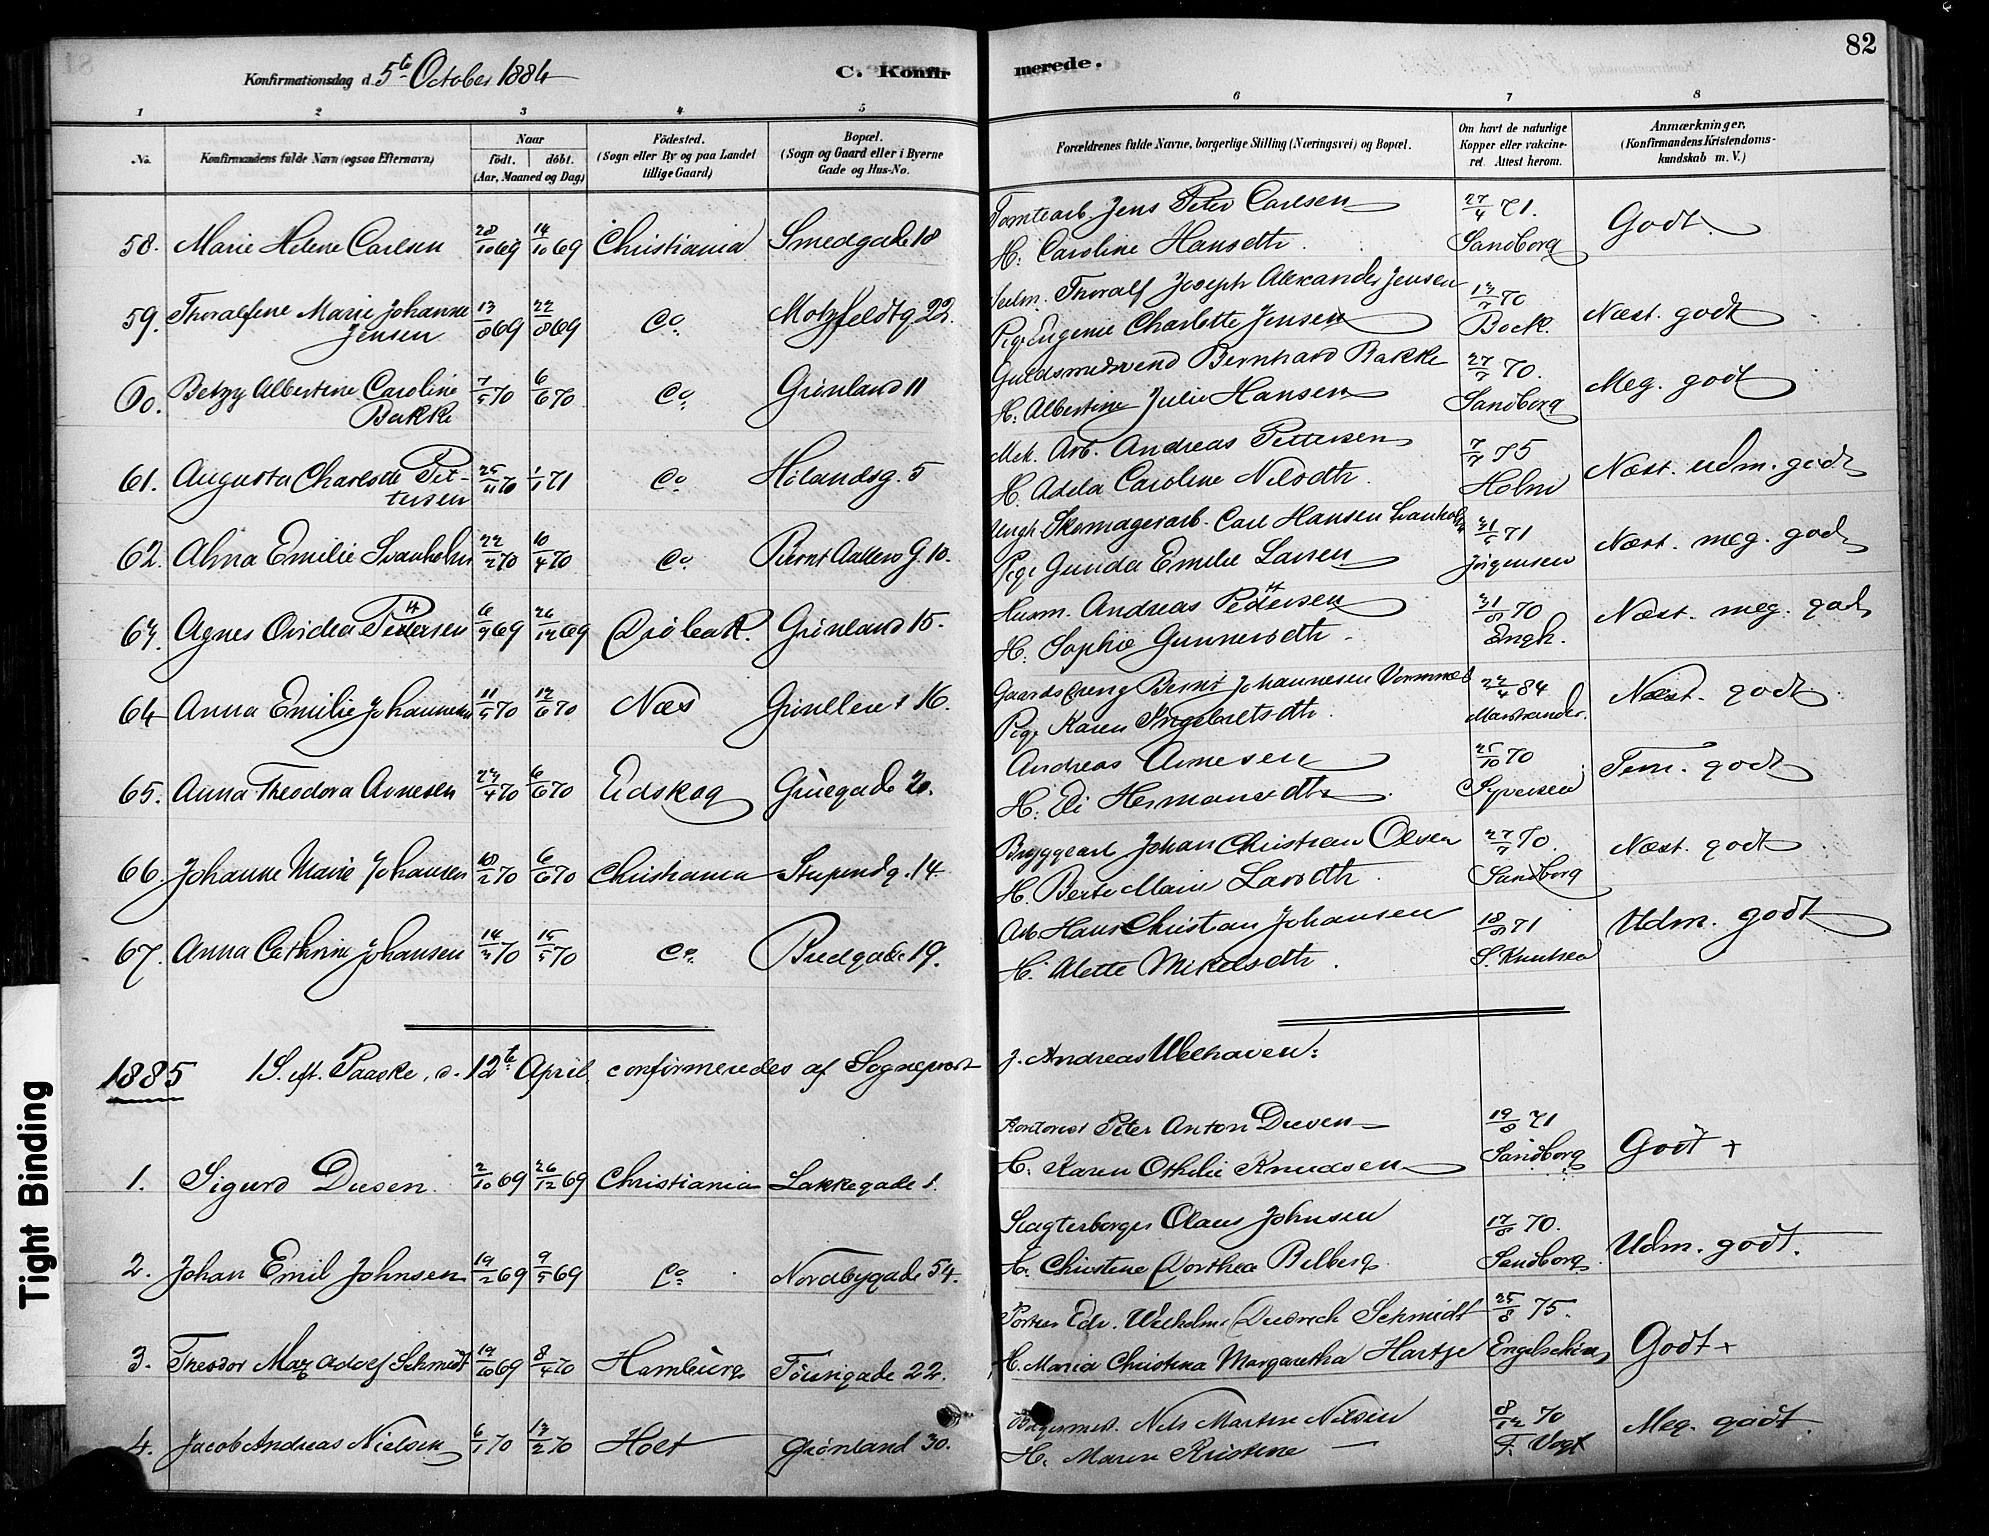 82
Konfirmationsdag d. 5te October 1884
C. Konfirmerede.
1 2 3 4 5 6 7 8
No. Konfirmandens fulde Navn (ogsaa Efternavn) Naar födt. döbt. (Aar, Maaned og Dag) Födested. (Sogn eller By og paa Landet tillige Gaard) Bopæl. (Sogn og Gaard eller i Byerne Gade og Hus-No. Forældrenes fulde Navne, borgerlige Stilling (Næringsvei) og Bopæl. Om havt de naturlige Kopper eller vakcineret. Attest herom. Anmærkninger, (Konfirmandens Kristendomskundskab m. V.)
58. Marie Helene Carlsen 28/10 69 14/10 69 Christiania Smedgade 18 Tomtearb. Jens Peter Carlsen 27/4 71. Godt
H. Caroline Hansdtr. Sandborg
59. Thoralfine Marie Johanne 13/8 69 22/8 69 Co Motzfeldtg 22. Thoralf Joseph Alexander Jensen 13/7 70 Næst. godt
Jensen Pige Eugenie Charlotte Jensen Bock.
60. Betzy Albertine Caroline 7/5 70 6/6 70 Co Grönland 11 Guldsmedsvend Bernhard Bakke 27/7 70. Meg. godt
Bakke H. Albertine Julie Hansen Sandborg
61. Augusta Charlotte Pet- 25/11 70 1/1 71 Co Hölandsg. 5 Mek. Arb. Andreas Pettersen 7/7 75 Næst. udm. godt
tersen H. Adela Caroline Nilsdtr. Holm
62. Alma Emilie Svanholm 22/2 70 10/4 70 Co Bernt Ankers G. 10. Ungk. Skomagerarb. Carl Hansen Svanholm 31/5 71 Næst. meg. godt
Pige Gunda Emilie Larsen Jörgensen
63. Agnes Ovidia Pettersen 6/9 69 26/12 69 Dröbak. Grönland 15. Husm. Andreas Pettersen 31/8 70 Næst. meg. godt
H. Sophie Gunnersdtr. Engh.
64 Anna Emilie Johannesen 11/5 70 12/6 70 Næs 16. Gaardsdreng Bernt Johannesen 22/4 84 Næst. godt
Pige Karen Ingebretsdtr. Marstrander.
65. Anna Theodora Arnesen 23/4 70 6/6 70 Eidskog Gruegade 20. Andreas Arnesen 25/10 70 Tem. godt
H. Eli Hermansdtr. Syversen
66. Johanne Marie Johansen 10/2 70 6/6 70 Christiania Stupendg. 14 Bryggearb Johan Christian Olsen 27/7 70. Næst. godt
H. Berte Marie Larsdtr. Sandborg
67. Anna Cathrine Johansen 14/3 70 15/5 70 Co. Bredgade 19. Arb. Hans Christian Johansen 18/8 71 Udm. godt
H. Alette Mikelsdtr. S. Knutsen
1885 1 S. eft. Paaske, d. 12te April confirmeredes af Sogneprest J. Andreas Welhaven:
1. Sigurd Duesen. 2/10 69 26/12 69 Christiania Lakkegade 1. Kontorist Peter Anton Duesen 19/8 71 Godt +
H. Karen Othilie Knudsen Sandborg
2. Johan Emil Johnsen 19/2 69 9/5 69 Co Nordbygade 54. Slagterborger Olaus Johnsen 17/8 70. Udm. godt.
H. Christine Dorthea Belberg. Sandborg.
3. Theodor Max Adolf Schmidt 19/10 69 8/4 70 Hamburg Töiengade 22. Edv. Wilhelm Diedrich Schmidt 25/8 75. Godt +
H. Maria Christina Margaretha Hartje Engelschiøn
4. Jacob Andreas Nielsen 6/1 70 13/2 70 Holt Grönland 30. Bagermest. Nils Martin Nilsen 8/12 70 Meg. godt.
H. Maren Kristine — F. Vogt
Tight Binding